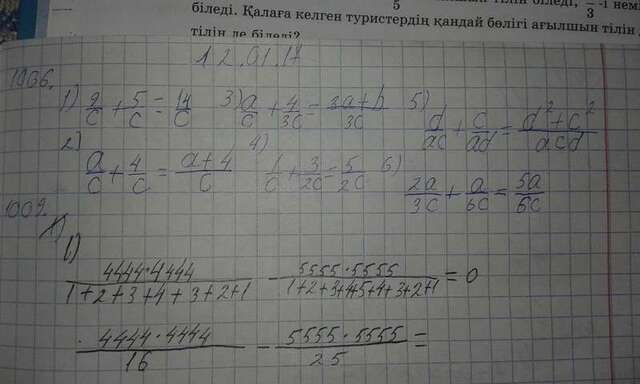 5 3
біледі. Қалаға келген туристердің қандай бөлігі ағылшын тілін
тілін де біледі?
12.01.17
1006.
1) 9/c + 5/c = 14/c 3) a/c + 4/3c = 3a+b/3c 5) d/ac + c/ad = d²+c²/acd
2) a/c + 4/c = a+4/c 4) 1/c + 3/2c = 5/2c 6) 2a/3c + a/6c = 5a/6c
1009.
1)
4444·4444/1+2+3+4+3+2+1 - 5555·5555/1+2+3+4+5+4+3+2+1 = 0
4444·4444/16 - 5555·5555/25 =